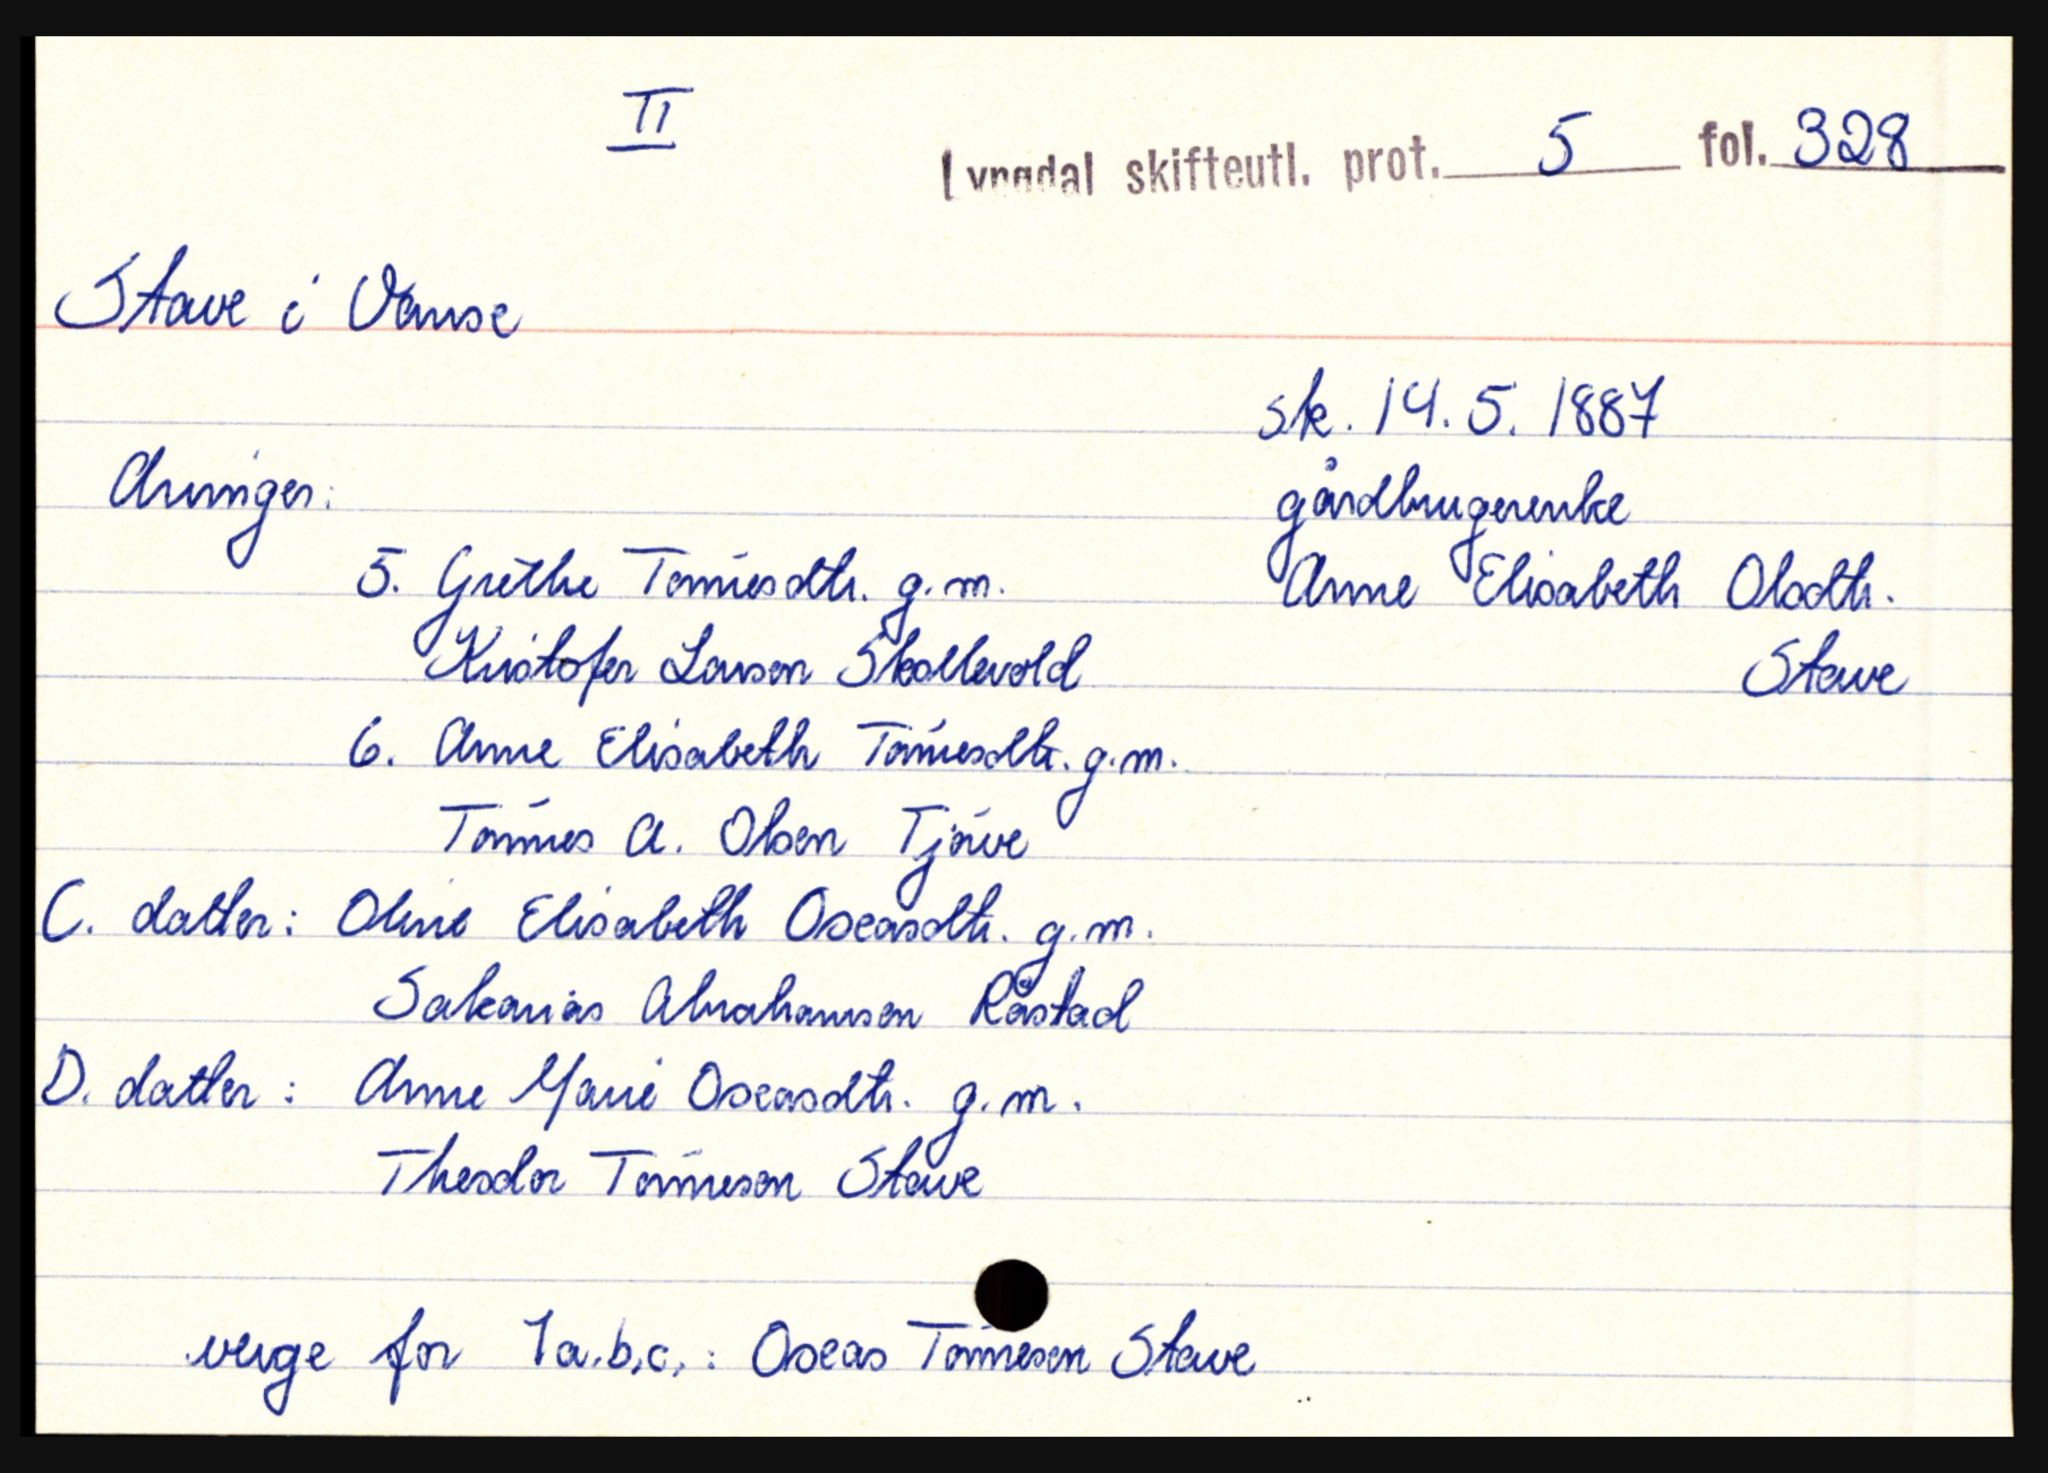 II
Lyngdal skifteutl. prot. 5 fol. 328
Stave i Vanse
sk. 14.5.1887
gårdbrugerenke
Anne Elisabeth Olsdtr.
Stave
Arvinger:
5. Grethe Tønnesdtr. g.m.
Kristofer Larsen Skollevold
6. Anne Elisabeth Tønnesdtr. g.m.
Tønnes A. Olsen Tjørve
C. datter: Oline Elisabeth Oseasdtr. g.m.
Sakarias Abrahamsen Råstad
D. datter: Anne Marie Oseasdtr. g.m.
Theodor Tønnesen Stave
verge for 1a.b,c,: Oseas Tønnesen Stave